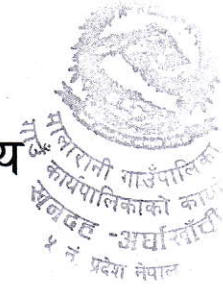 य
मालारानी गाउँपालिका
गाउँ कार्यपालिकाको का
खनदह -अर्घाखाँची
५ नं. प्रदेश नेपाल